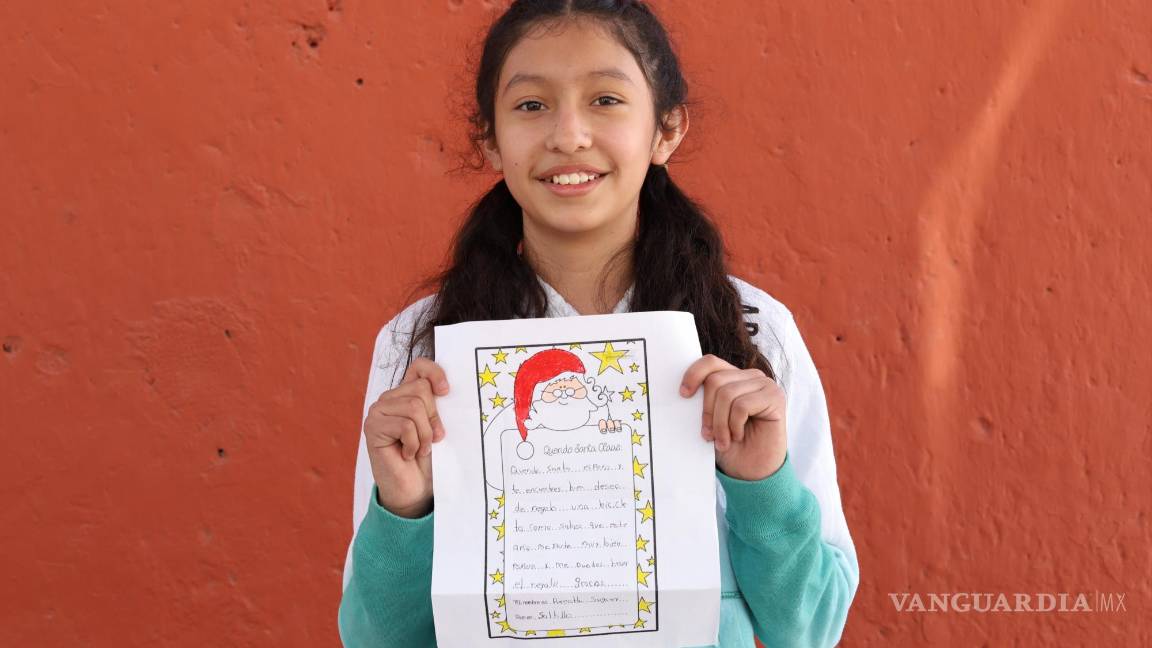 Querido Santa Claus:
Querido Santa
te encuentres bien deseo
de regalo una bicicle
ta como sabes que este
año me porte muy bien
me puedas traer
el regalo gracias
Mi nombre es
Saltillo
VANGUARDIA|MX